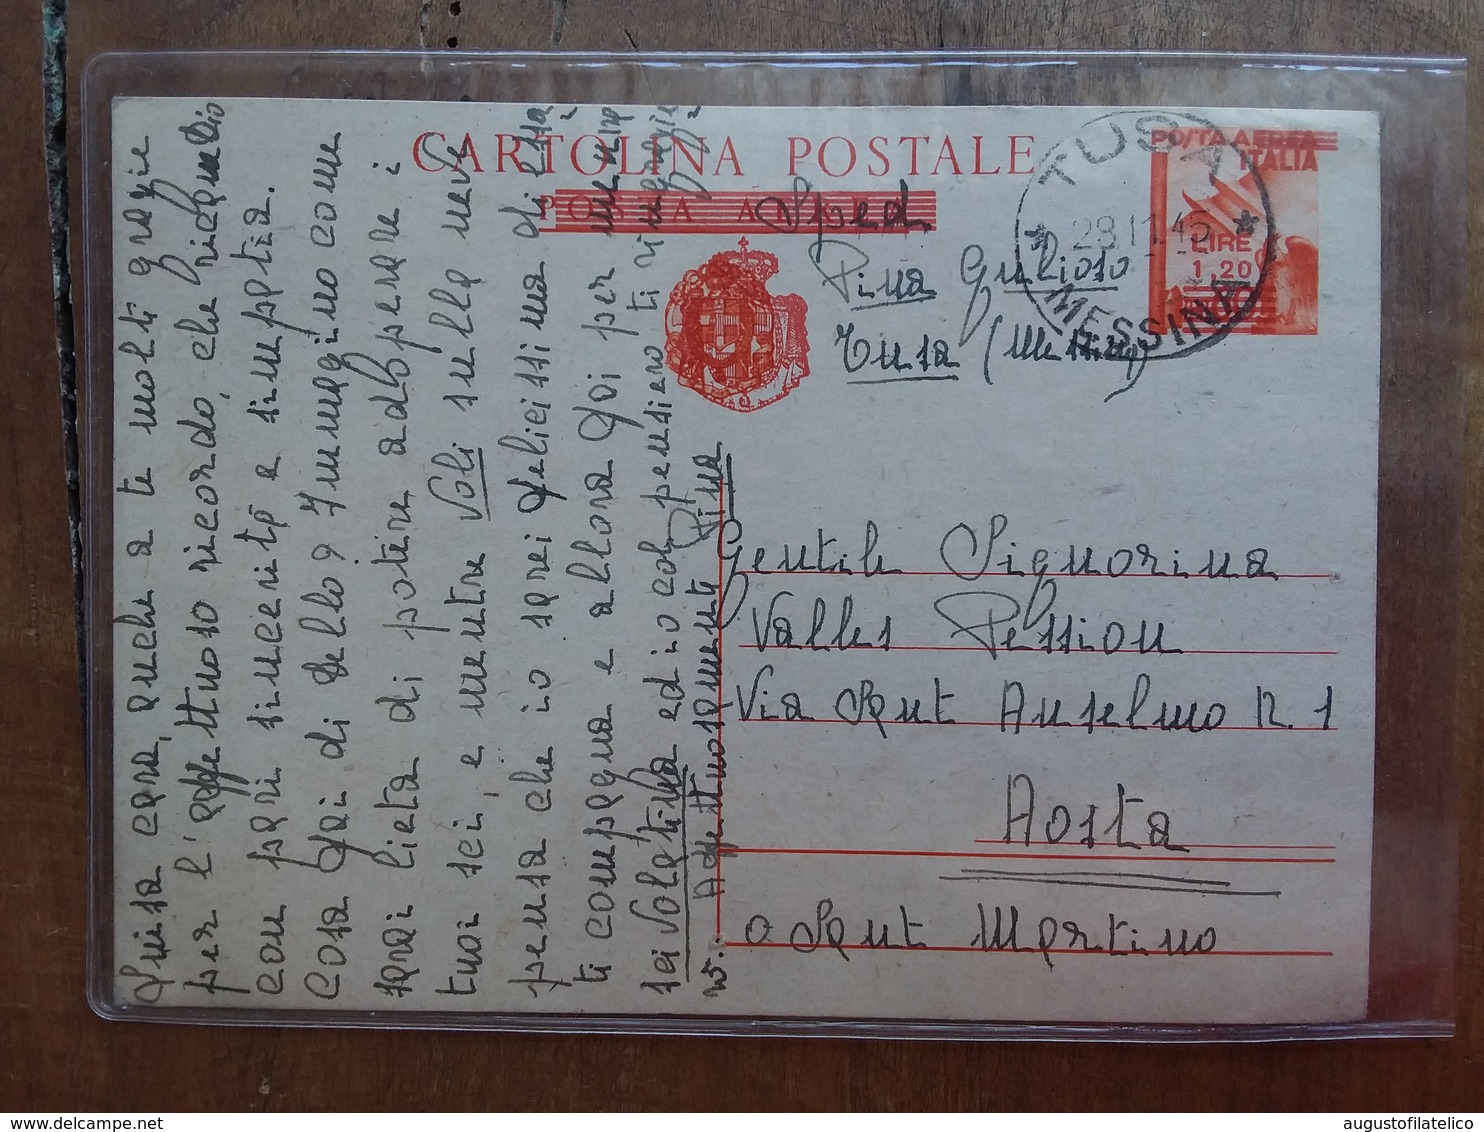 CARTOLINA POSTALE
POSTA AEREA
POSTA AEREA
ITALIA
LIRE
1,20
TUSA
28.11.45
MESSINA
Sped
Pina Gulioso
Tusa (Messina)
Gentile Signorina
Valles Pession
Via Sant Anselmo n. 1
Aosta
o Sant Martino
cara, anche a te molte grazie
per l'affettuoso ricordo, che ricambio
con pari sincerità e simpatia.
Cosa fai di bello? Immagino come
sarai lieta di potere adoperare i
tuoi sci, e mentre Voli sulla neve
pensa che io sarei felicissima di
ti compagna e allora fai per
sei Volatina ed io col pensiero ti
Affettuosamente Pina
augustofilatelico